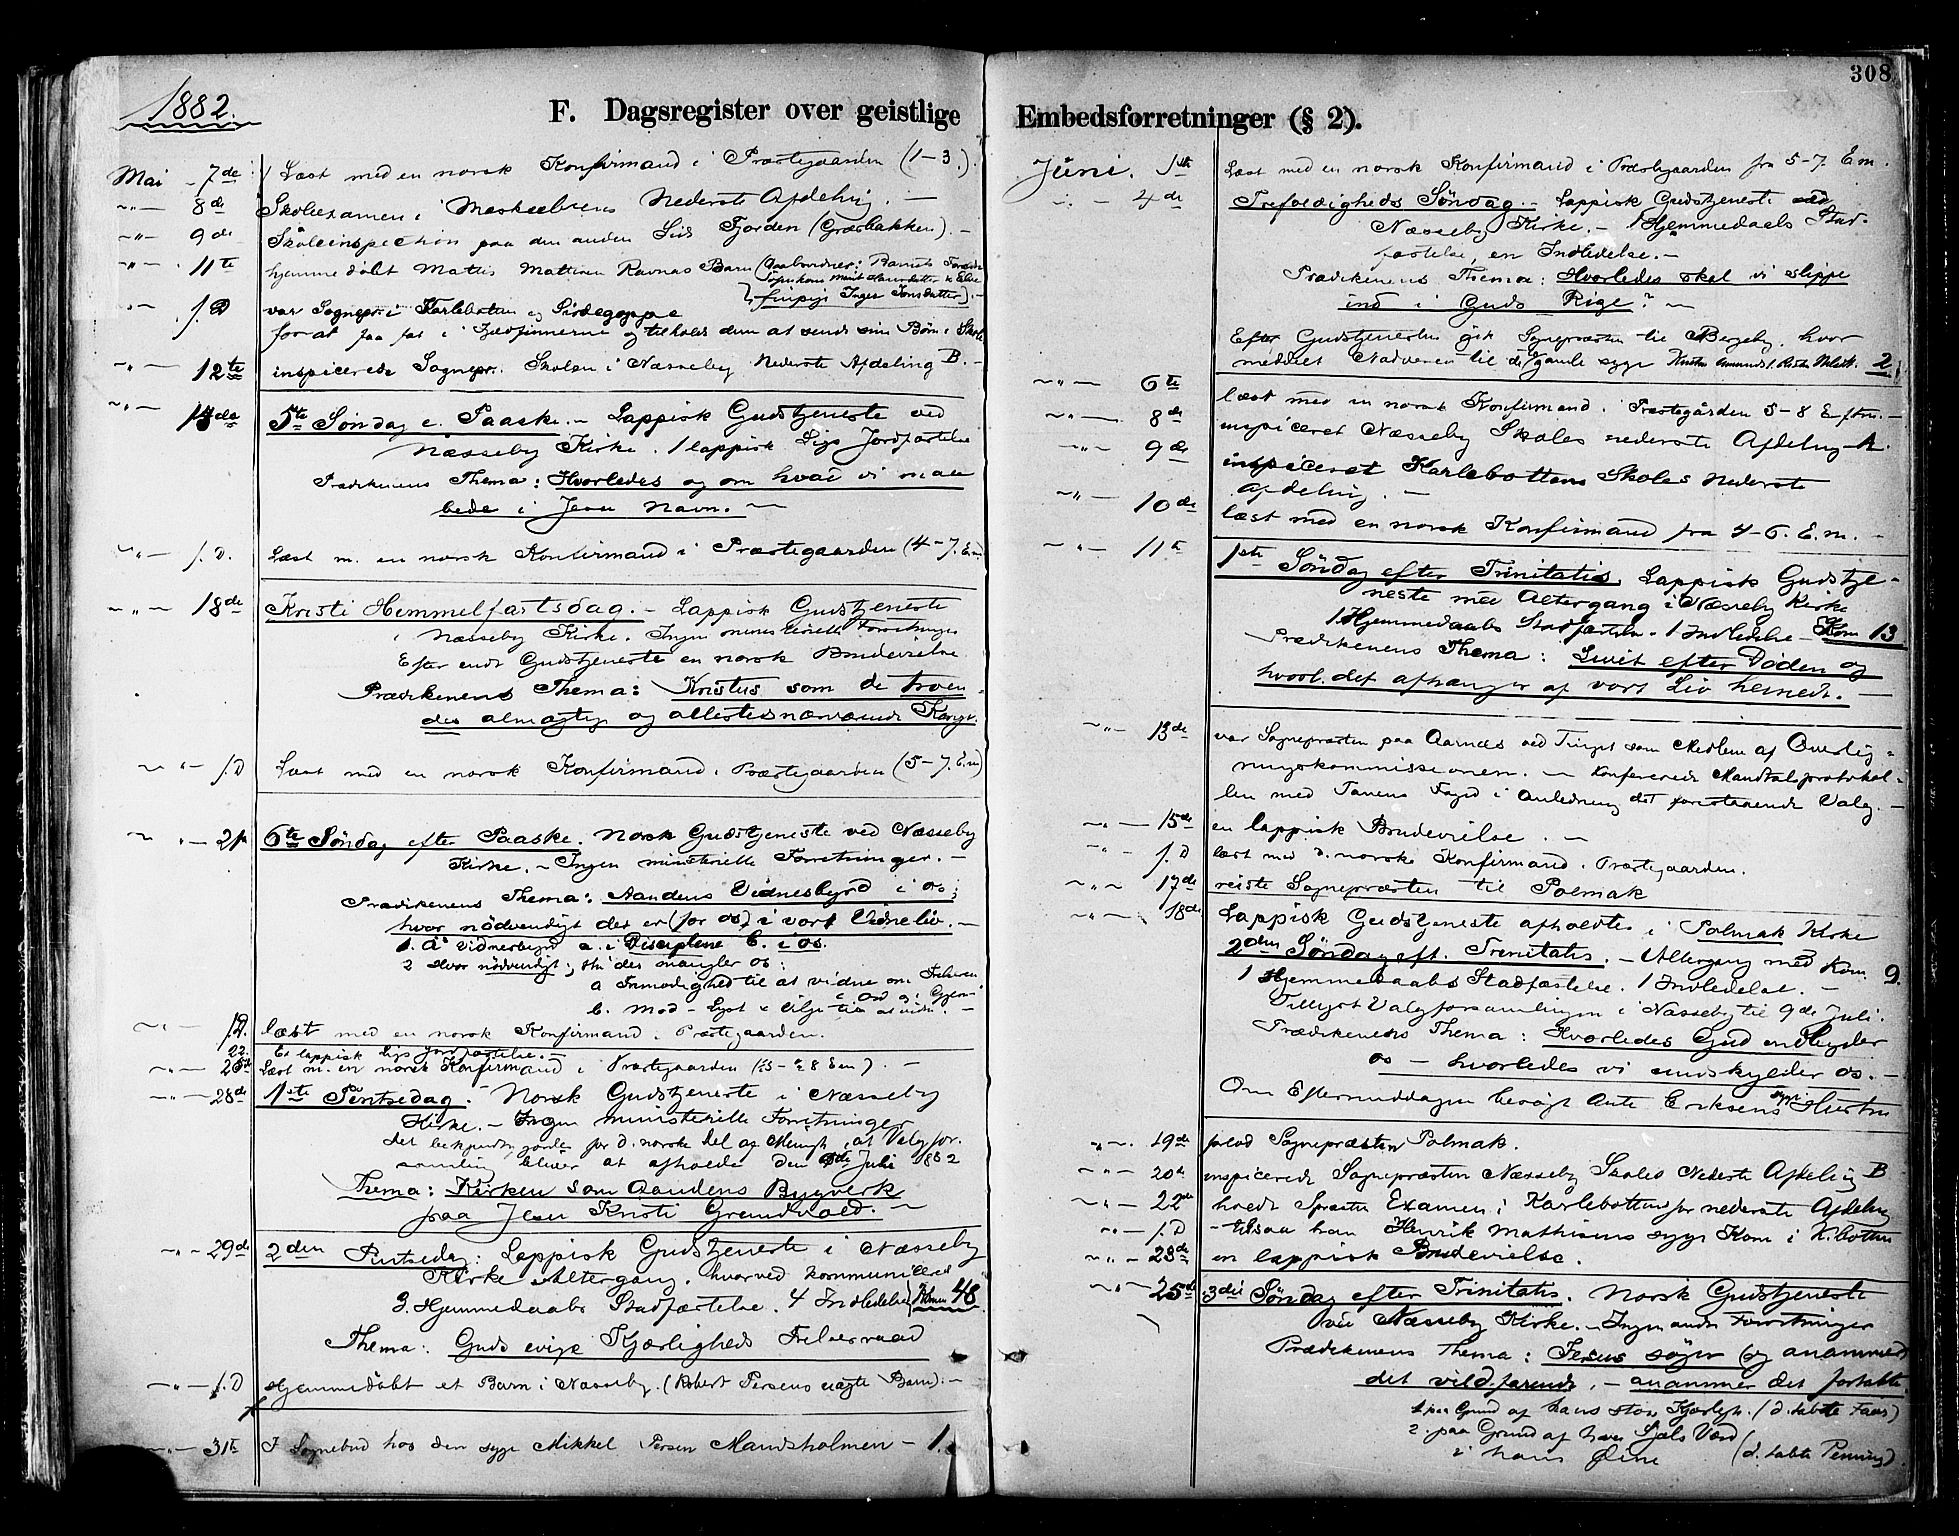 308
1882.
F. Dagsregister over geistlige Embedsforretninger (§ 2).
Mai 7de Læst med en norsk Konfirmand i Præstegaarden (1-3.).
-"- 8de Skoleexamen i Nederste Afdeling. -
-"- 9de Skoleinspection paa den anden Side Fjorden (Græsbakken). -
-"- 11te hjemmedøbt Mathis Mathisen Ravnas Barn
finpige Inger Jonsdatter). -
-"- s.D var Sognepr. i Karlebotten og
for at faa fat i og tilholde dem at sende sine Børn i Skole
-"- 12te inspicerede Sognepr. Skolen i Næsseby Nederste Afdeling B. -
-"- 14de 5te Søndag e. Paaske. - Lappisk Gudstjeneste ved
Næsseby Kirke. 1 lappisk Ligs Jordfæstelse
Prædikenens Thema: Hvorledes og om hvad vi maa
bede i Jesu Navn. -
-"- s.D. Læst m. en norsk Konfirmand i Præstegaarden (4-7. E.m)
-"- 18de Kristi Himmelfartsdag. - Lappisk Gudstjeneste
i Næsseby Kirke. Ingen ministerielle Forretninger
Efter endt Gudstjeneste en norsk Brudevielse.
Prædikenens Thema: Kristus som de troen-
des almægtige og allestedsnærværende Konge.
-"- s.D Læst med en norsk Konfirmand i Præstegaarden (5-7. E.m)
-"- 21 6te Søndag efter Paaske. Norsk Gudstjeneste ved Næsseby
Kirke. - Ingen ministerielle Forretninger. -
Prædikenens Thema: Aandens Vidnesbyrd i os;
hvor nødvendigt det er (for os) i vort Vidneliv. -
1. A's Vidnesbyrd a. i Disciplene b. i os.
2 Hvor nødvendigt; thi des mangler os:
a Inmodighed til at vidne om Frelseren
b. Mod - Lyst & Vilje til at vidne. -
-"- s.D. læst med en norsk Konfirmand i Præstegaarden.
22. Et lappisk Ligs Jordfæstelse. -
-"- 25de Læst m. en norsk Konfirmand i Præstegaarden -
-"- 28de 1ste Pintsedag. - Norsk Gudstjeneste i Næsseby
Kirke. - Ingen ministerielle Forretninger
det bekjendtgjordes for d. norske Del af Menigh. at Valgfor-
samling bliver at afholde den 9de Juli 882
Thema: Kirken som Aandens Bygverk
paa Jesu Kristi Grundvold. -
-"- 29de 2den Pintsedag: Lappisk Gudstjeneste i Næsseby
Kirke Altergang, hvorved kommunicered
3. Hjemmedaabs Stadfæstelse. 4 Indledelse 48
Thema: Guds evige Kjærligheds Frelserraad
-"- s.D Hjemmedøbt et Barn i Næsseby. (Robert Persens uægte Barn). -
-"- 31te I Sognebud hos den syge Mikkel Persen Mandsholmen - 1.
Juni. 1ste Læst med en norsk Konfirmand i Præstegaarden fra 5-7. E.m.
-"- 4de Trefoldigheds Søndag. - Lappisk Gudstjeneste ved
Næsseby Kirke. - 1 Hjemmedaabs Stad-
fæstelse, en Indledelse. -
Prædikenens Thema: Hvorledes skal vi slippe
ind i Guds Rige? -
Efter Gudstjenesten gik Sognepræsten til Bergeby, hvor
meddelet Nadveren til de gamle syge 2
-"- 6te læst med en norsk Konfirmand i Præstegården 5-8 Eftm. -
-"- 8de inspiceret Næsseby Skoles nederste Afdeling A.
-"- 9de inspiceret Karlebottens Skoles Nederste
Afdeling. -
-"- 10de læst med en norsk Konfirmand fra 4-6. E.m. -
-"- 11te 1ste Søndag efter Trinitatis. Lappisk Gudstje-
neste med Altergang i Næsseby Kirke
1 Hjemmedaabs Stadfæstelse. 1 Indledelse - Kom 13
Prædikenens Thema: Livet efter Døden og
hvorl. det afhænger af vort Liv hernede. -
-"- 13de var Sognepræsten paa Aarnæs ved Tinget som Medlem af Overlig-
ningskommissionen. - Konfererede Mandtalsprotokol-
len med Tanens Foged i Anledning det forestaaende Valg. -
-"- 15de en lappisk Brudevielse. -
-"- s.D læst med d. norske Konfirmand i Præstegaarden.
-"- 17de reiste Sognepræsten til Polmak
-"- 18de Lappisk Gudstjeneste afholdtes i Polmak Kirke
2den Søndag eft. Trinitatis. - Altergang med Kom. 9.
1 Hjemmedaabs Stadfæstelse. 1 Indledelse. -
Tillyst Valgforsamlingen i Næsseby til 9de Juli.
Prædikenens Thema: Hvorledes Gud indbyder
os - hvorledes vi undskylder os. -
Om Eftermiddagen besøgt Ante Eriksens syge Hustru
-"- 19de forlod Sognepræsten Polmak.
-"- 20de inspicerede Sognepræsten Næsseby Skoles Nederste Afdeling B
-"- 22de holdt Præsten Examen i Karlebotten for nederste Afdeling
-"- s.D - tilsaa han Henrik Mathisens syge Kone i K.botten
-"- 23de en lappisk Brudevielse.
-"- 25de 3die Søndag efter Trinitatis. Norsk Gudstjeneste
ved Næsseby Kirke. - Ingen andre Forretninger
Prædikenens Thema: Jesus søger og anammer
det vildfarende, - anammer det fortabte.
1 paa Grund af hans store Kjærligh. (d. tabte Faar)
2. paa Grund af hver Sjæls Værd
i hans Øine (d. tabte Penning).